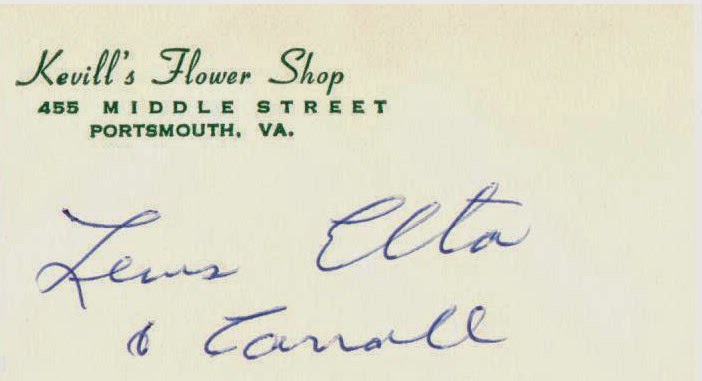 Kevill's Flower Shop
455 MIDDLE STREET
PORTSMOUTH, VA.
Lewis Elta
& Carroll